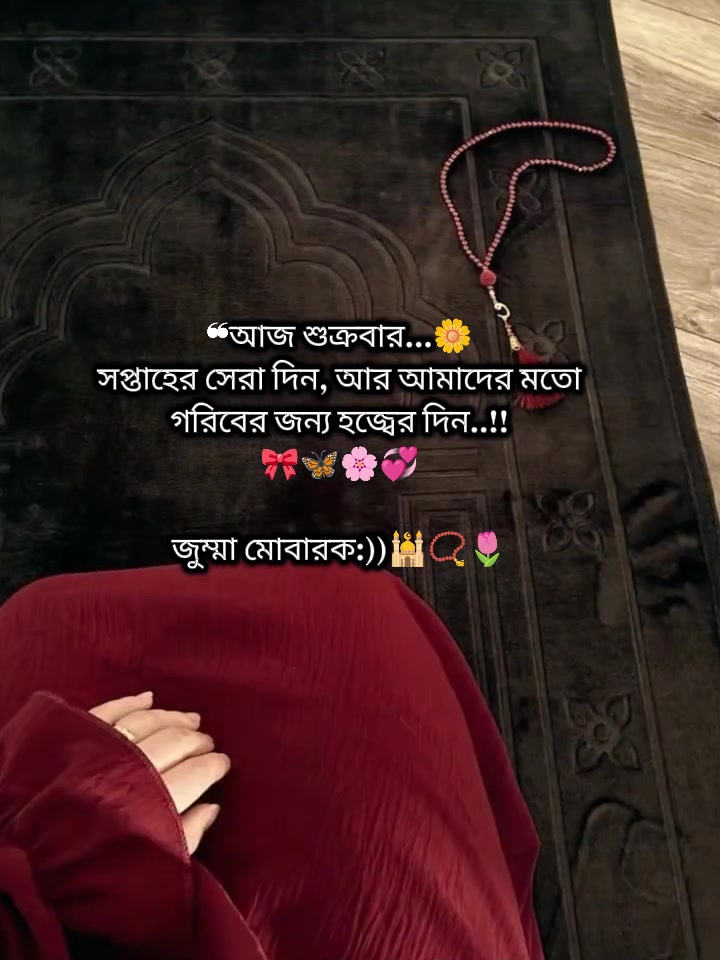 ❝আজ শুক্রবার...🌼
সপ্তাহের সেরা দিন, আর আমাদের মতো
গরিবের জন্য হজ্বের দিন..!!
🎀🦋🌸💞
জুম্মা মোবারক:))🕌📿🌷